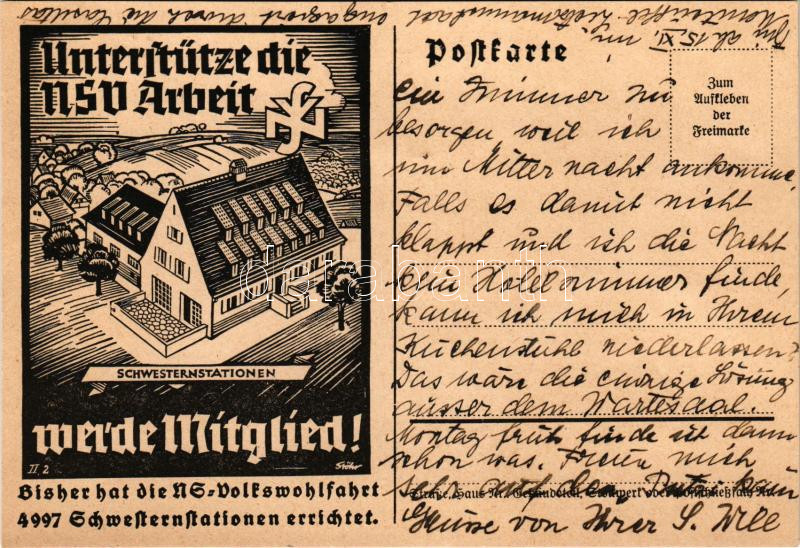 Unterstütze die
NSV Arbeit
SCHWESTERNSTATIONEN
werde Mitglied!
II 2
Bisher hat die NS-Volkswohlfahrt
4997 Schwesternstationen errichtet.
Postkarte
Zum
Aufkleben
der
Freimarke
ein Zimmer zu
besorgen weil ich
um Mitternacht ankomme.
Falls es damit nicht
klappt und ich die Nacht
kein Hotelzimmer finde,
kann ich mich in Ihrem
Küchenstuhl niederlassen?
Das wäre die einzige Lösung
ausser dem Wartesaal.
Montag früh finde ich dann
schon was. Freue mich
sehr auf den
Straße, Haus Nr., Gebäudeteil, Stockwerk oder Postschließfach Nr.
Grüsse von Ihrer S. Will
darabanth